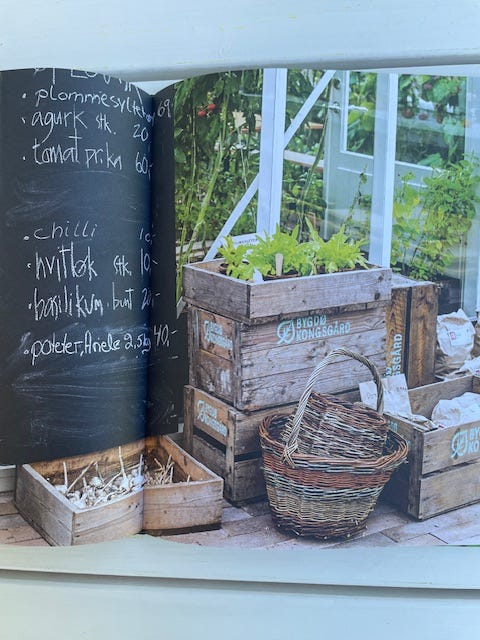 plommesyltetøy 69
agurk stk. 20
tomat prika 60,-
chilli 10,-
hvitløk stk. 10,-
basilikum, bunt 20,-
poteter, Anele 2.5kg 40,-
BYGDØ
KONGSGÅRD
BYGDØ
KONGSGÅRD
KONGSGÅRD
BYGD
KONG